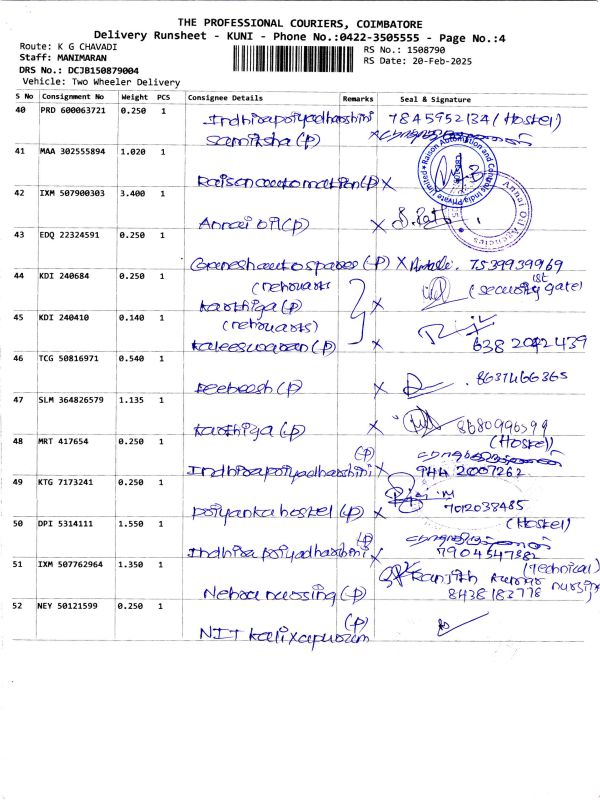 THE PROFESSIONAL COURIERS, COIMBATORE
Delivery Runsheet - KUNI - Phone No.:0422-3505555 - Page No.:4
Route: K G CHAVADI
RS No.: 1508790
Staff: MANIMARAN
RS Date: 20-Feb-2025
DRS No.: DCJB150879004
Vehicle: Two Wheeler Delivery
S No Consignment No Weight PCS Consignee Details Remarks Seal & Signature
40 PRD 600063721 0.250 1 Indhirapriyadharshini 7845952134 (Hostel)
samiksha (P)
41 MAA 302555894 1.020 1
Raison automation (P) X
Raison Automation and Controls India Private Limited
42 IXM 507900303 3.400 1
Annai oil (P) X
Annai Oil Agencies
43 EDQ 22324591 0.250 1
Ganesh auto spares (P) X 7539939969
44 KDI 240684 0.250 1 (rehouarts 1st (security gate)
karthiga (P) X
45 KDI 240410 0.140 1 (rehouarts)
kaleeswaran (P) X 638 2042439
46 TCG 50816971 0.540 1 8637466365
(P) X
47 SLM 364826579 1.135 1
karthiga (P) X 8680996599
48 MRT 417654 0.250 1 (P) (Hostel)
Indhirapriyadharshini X 944 2007262
49 KTG 7173241 0.250 1
priyanka hostel (P) X 7012038485
50 DPI 5314111 1.550 1 (P) (Hostel)
Indhira priyadharshini X 7904547382
51 IXM 507762964 1.350 1 Ranjith kumar (Technical) nursing
Nehru nursing (P) 8438182778
52 NEY 50121599 0.250 1 (P)
NIT kaliyapuram